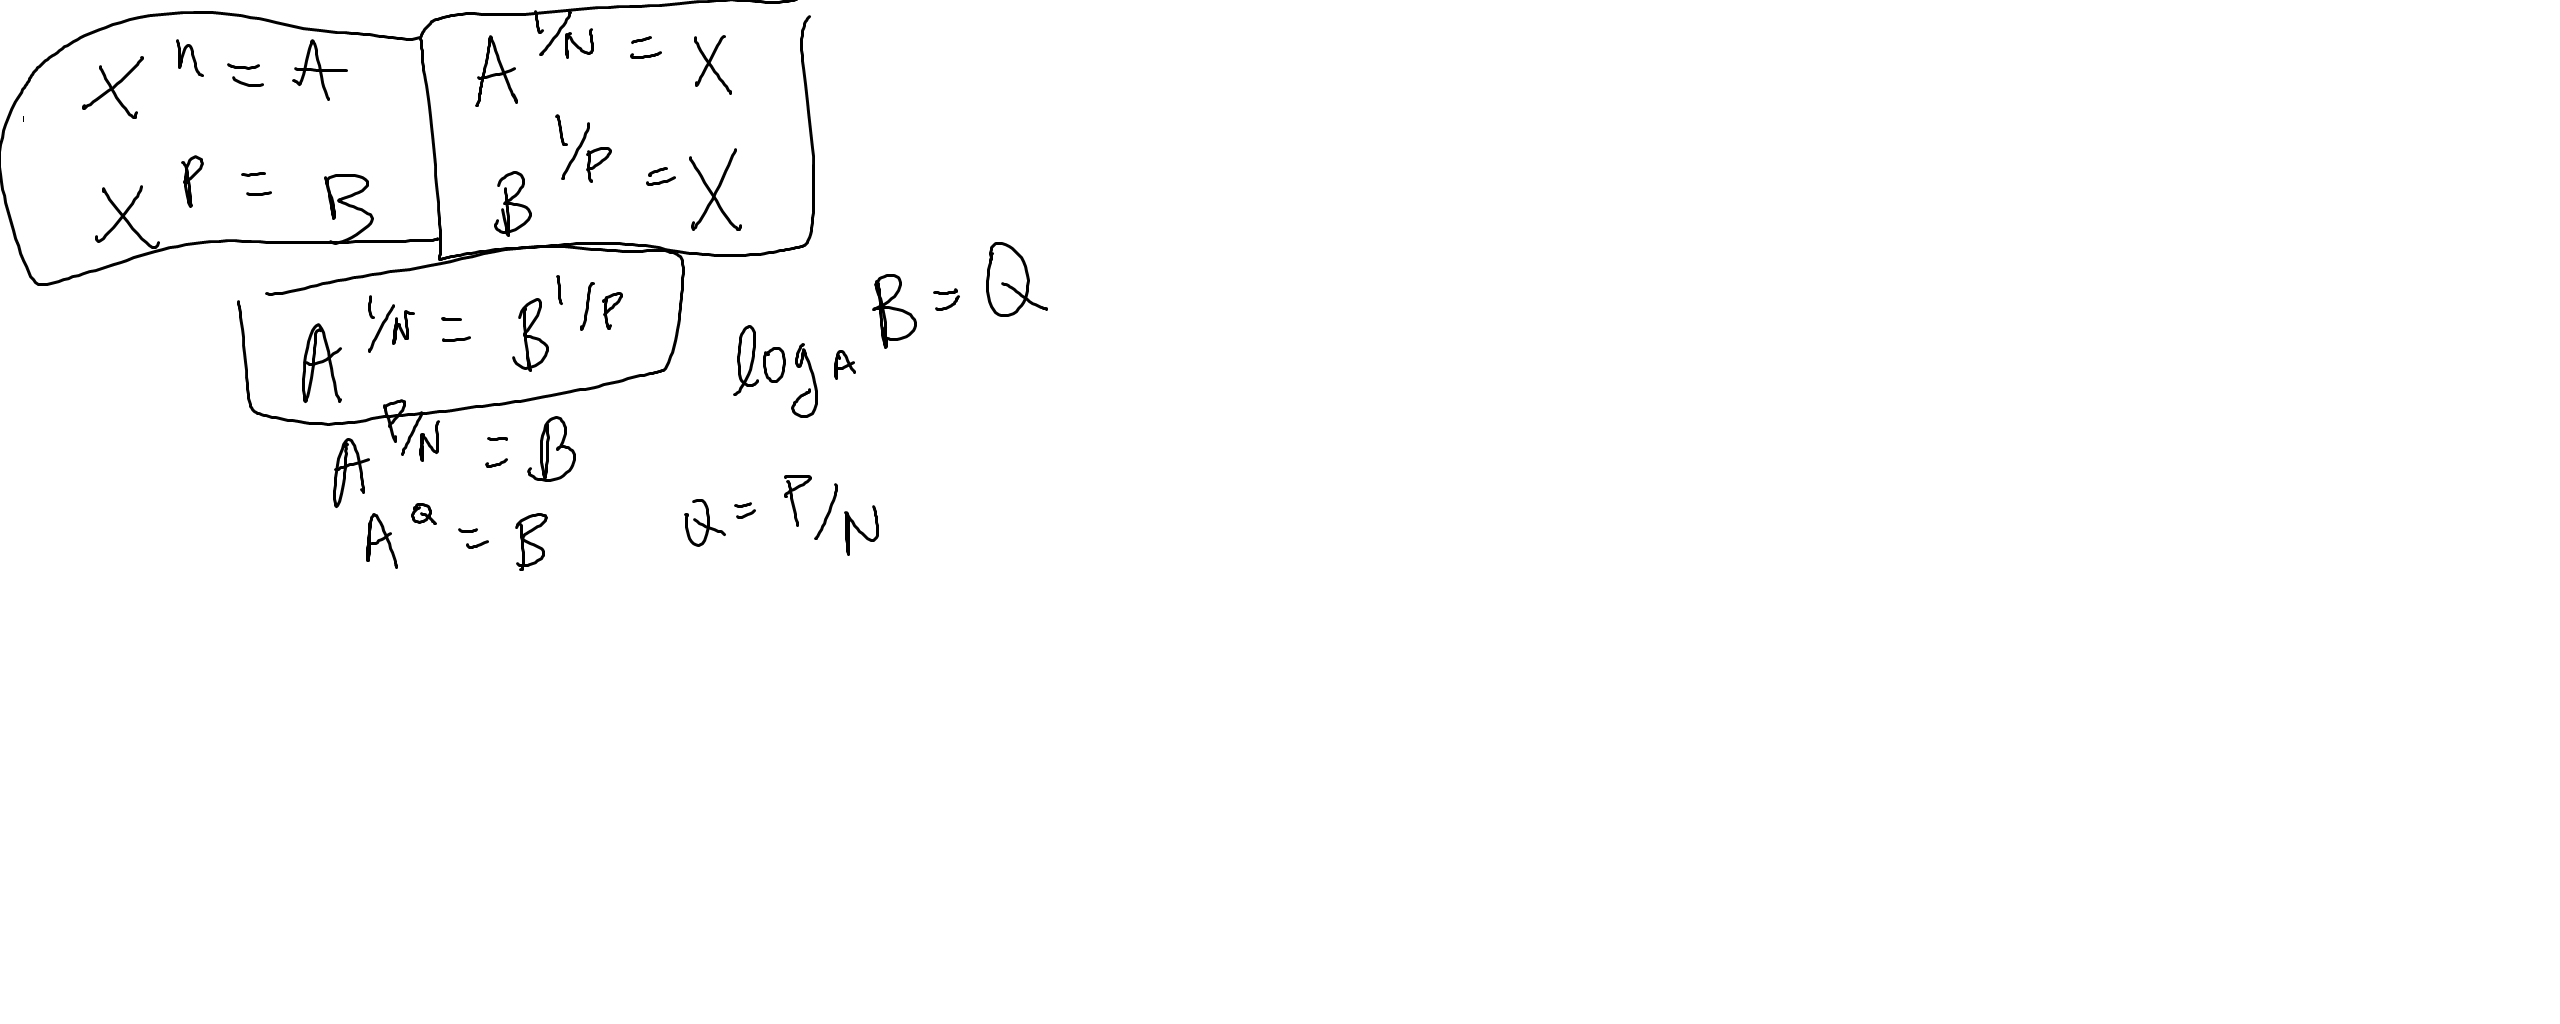 Xⁿ = A
X^P = B
A^1/N = X
B^1/P = X
A^1/N = B^1/P
log_A B = Q
A^P/N = B
A^Q = B
Q = P/N